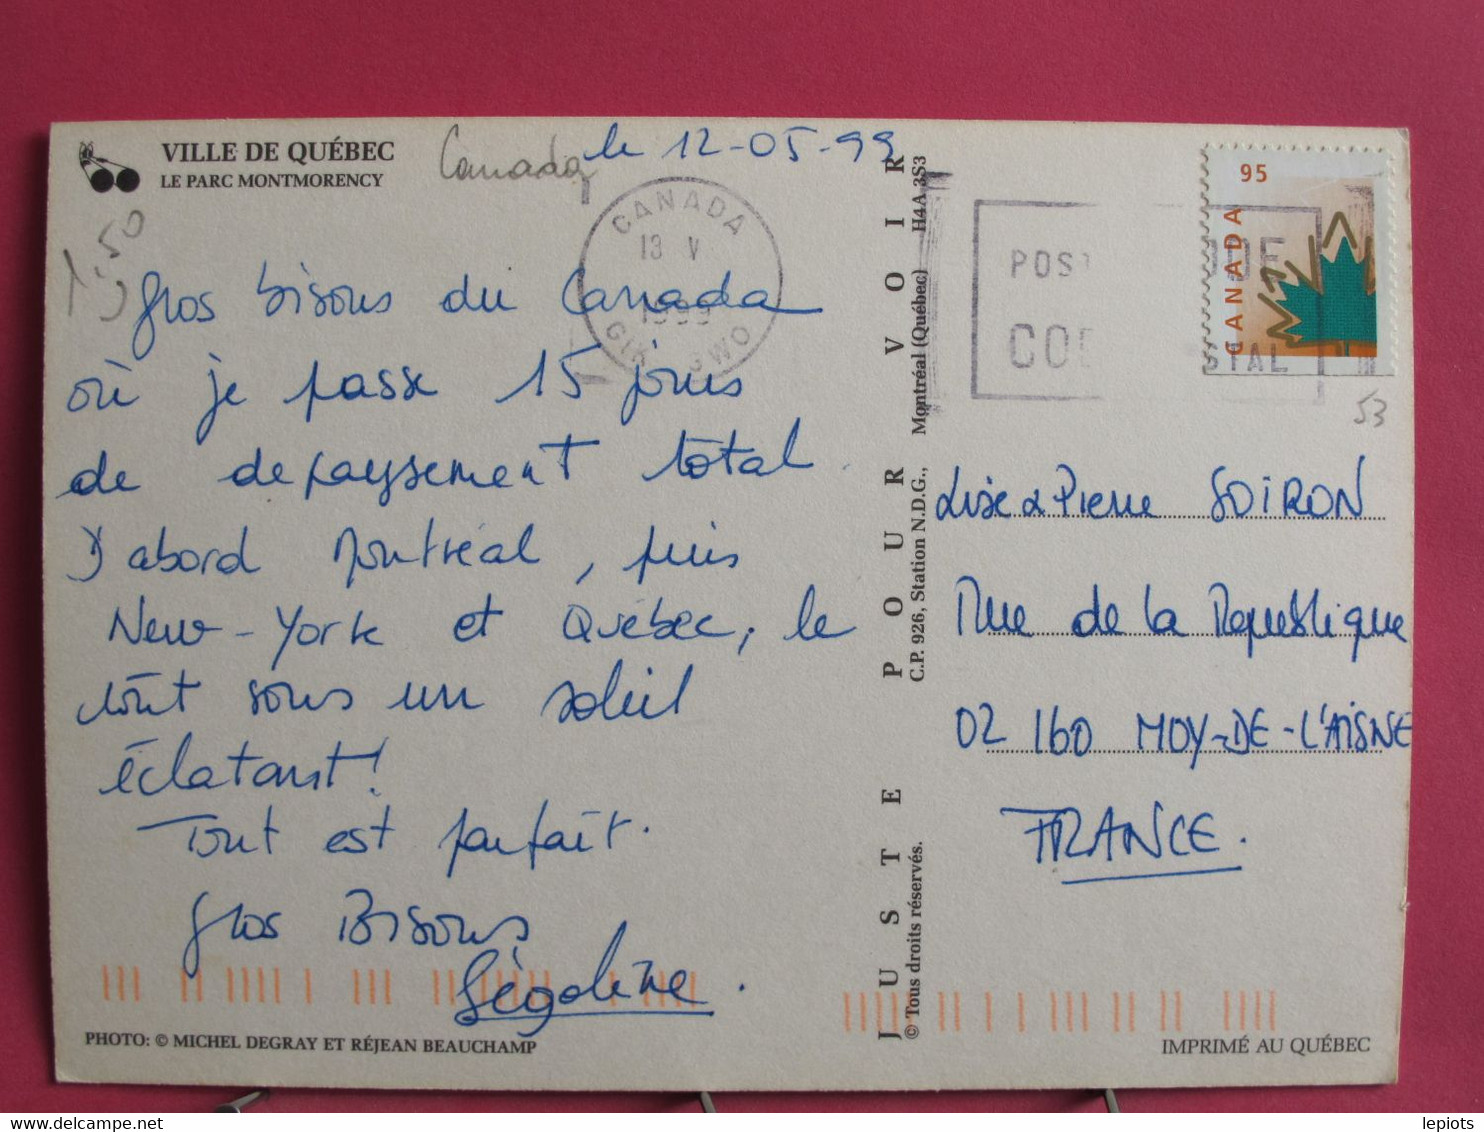 VILLE DE QUÉBEC
LE PARC MONTMORENCY
Canada
le 12-05-99
1,50
Gros bisous du Canada
où je passe 15 jours
de depaysement total.
D'abord Montréal, puis
New-York et Québec, le
tout sous un soleil
éclatant!
Tout est parfait.
Gros Bisous
Ségolène.
PHOTO: © MICHEL DEGRAY ET RÉJEAN BEAUCHAMP
CANADA
13 V
1999
JUSTE POUR VOIR
© Tous droits réservés. C.P. 926, Station N.D.G., Montréal (Québec) H4A 3S3
POST
CO
DE
STAL
95
CANADA
53
Lise & Pierre SOIRON
Rue de la Republique
02 160 MOY-DE-L'AISNE
FRANCE.
IMPRIMÉ AU QUÉBEC
lepiots